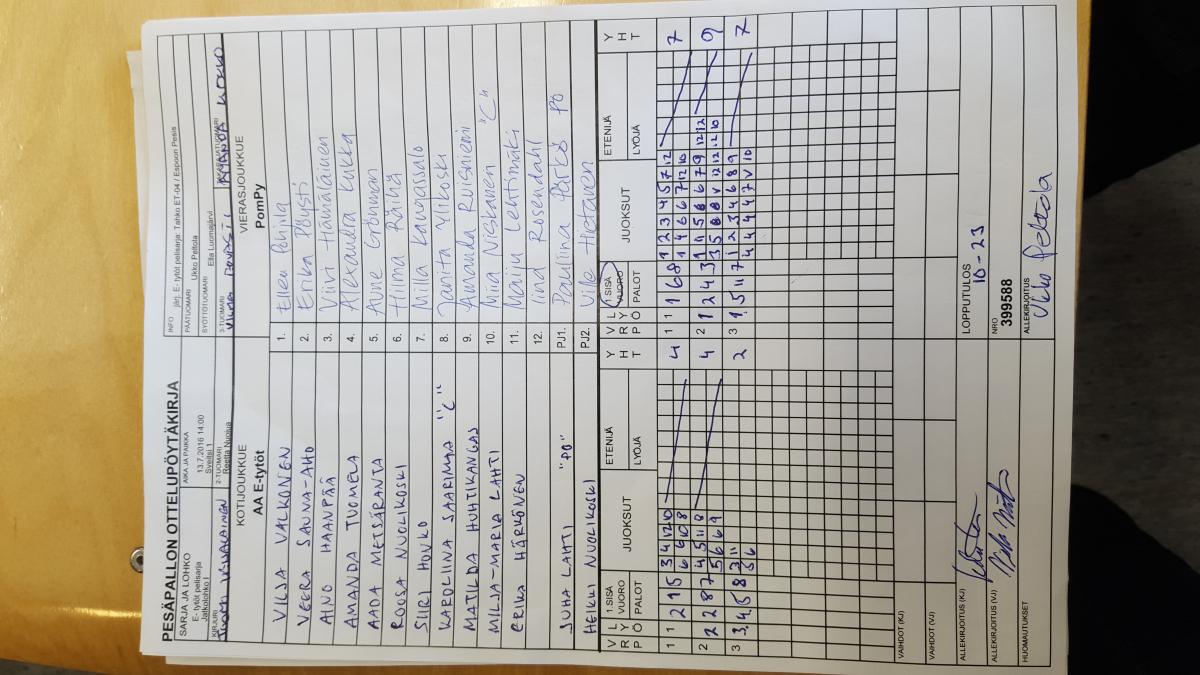 PESÄPALLON OTTELUPÖYTÄKIRJA
SARJA JA LOHKO
E- tytöt pelisarja
Jatkolohko I
AIKA JA PAIKKA
13.7.2016 14:00
Sveitsi 1
INFO järj. E- tytöt pelisarja: Tahko ET-04 / Espoon Pesis
PÄÄTUOMARI Ukko Peltola
SYÖTTÖTUOMARI Ella Luomajärvi
KIRJURI
2-TUOMARI
Reetta Nuojua
3-TUOMARI
KOTIJOUKKUE
AA E-tytöt
VIERASJOUKKUE
PomPy
VILJA VALKONEN 1. Ellen Pohjola
VEERA SAUNA-AHO 2. Erika Pöysti
AINO HAANPÄÄ 3. Viivi Hämäläinen
AMANDA TUOMELA 4. Alexandra Kukka
AADA METSÄRANTA 5. Aune Grönman
ROOSA NUOLIKOSKI 6. Hilma Räihä
SIIRI HONKO 7. Milla Kangassalo
KAROLIINA SAARIMAA "C" 8. Janita Ylikoski
MATILDA HUHTIKANGAS 9. Amanda Ruisniemi
MILJA-MARIA LAHTI 10. Miia Niskanen "C"
ERIKA HÄRKÖNEN 11. Maiju Lehtimäki
12. Iina Rosendahl
JUHA LAHTI "PO" PJ1. Pauliina Pärkö PO
HEIKKI NUOLIKOSKI PJ2. Ville Hietanen
V R L Y P Ö 1.SISÄ VUORO PALOT JUOKSUT ETENIJÄ LYÖJÄ Y H T
V R L Y P Ö 1.SISÄ VUORO PALOT JUOKSUT ETENIJÄ LYÖJÄ Y H T
1 1 2 1 5 3 4 12 10 4
6 6 10 8
2 2 2 8 7 4 5 11 8 4
5 6 6 9
3 3 4 5 8 3 11 2
5 6
1 1 1 6 8 1 2 3 4 5 7 12 7
1 4 6 6 7 12 10
2 1 2 4 3 9
3 1 5 11 7 1 2 3 4 6 8 9 7
4 4 4 4 7 V 10
VAIHDOT (KJ)
VAIHDOT (VJ)
ALLEKIRJOITUS (KJ)
LOPPUTULOS
10 - 23
ALLEKIRJOITUS (VJ)
NRO
399588
HUOMAUTUKSET
ALLEKIRJOITUS
Ukko Peltola